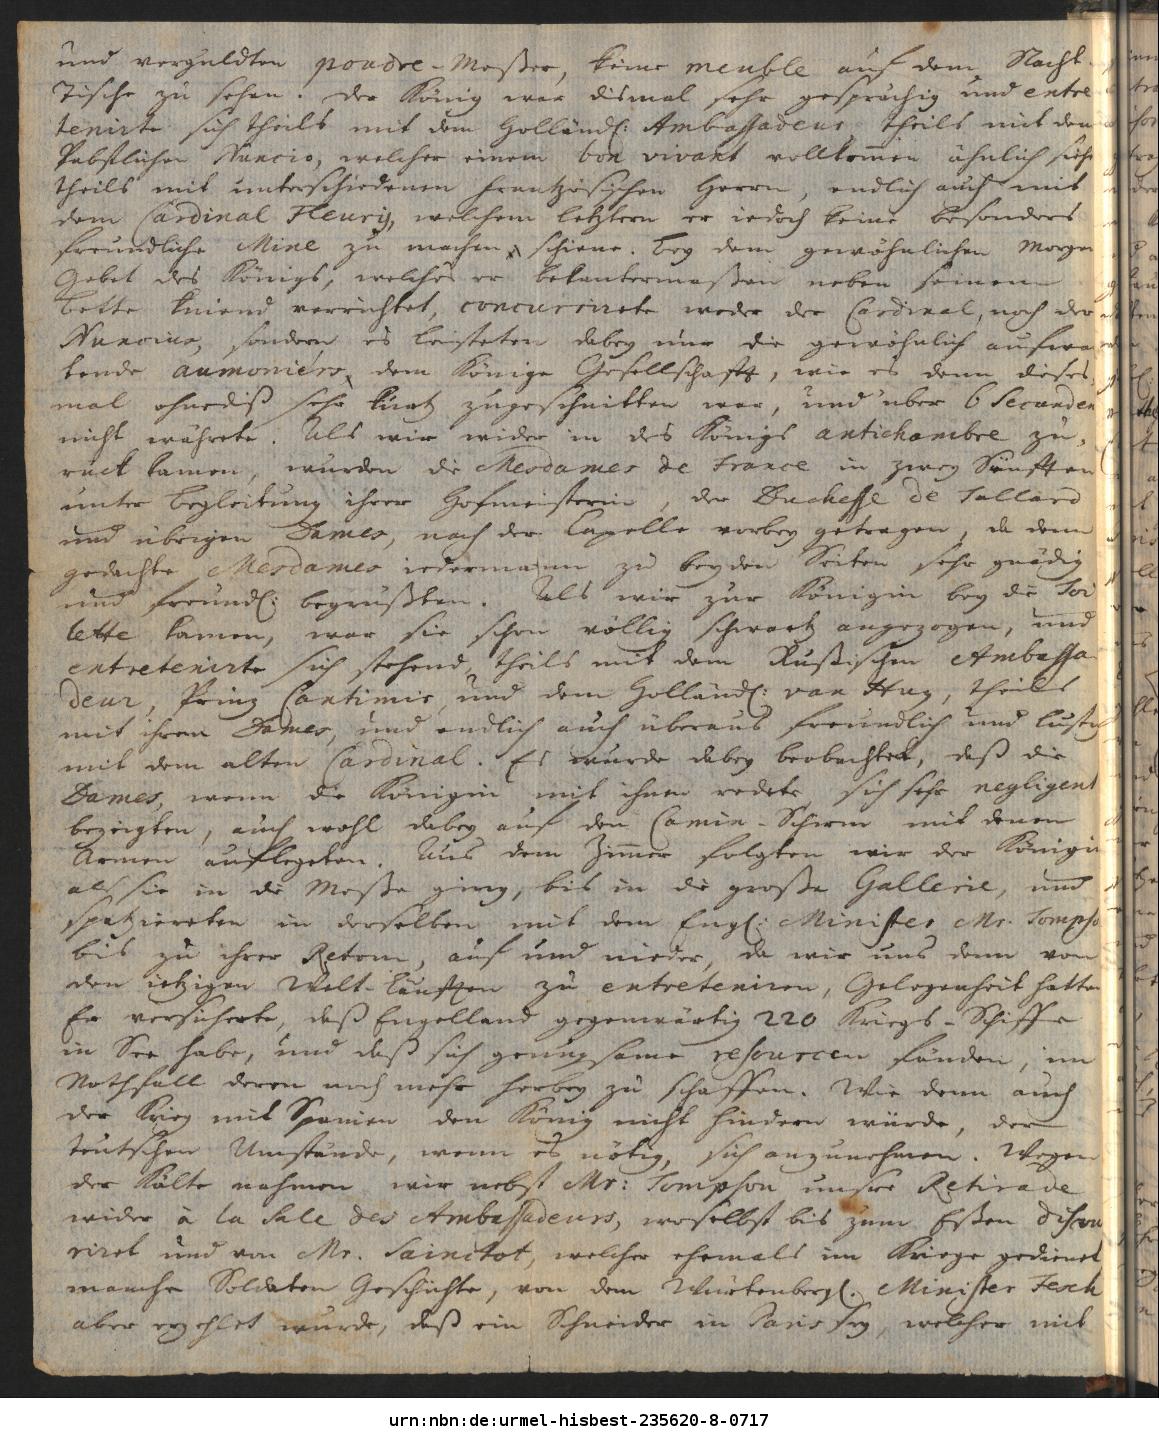 und verguldten poudre-Meßer, keine meuble auf dem Nacht-
Tische zu sehen. Der König war dismal sehr gesprächig und entre
tenirte sich theils mit dem Holländ: Ambassadeur, theils mit dem
Pabstlichen Nuncio, welcher einem bon vivant vollkom̅en ähnlich siehe
theils mit unterschiedenen frantzösischen Herrn, endlich auch mit
dem Cardinal Fleury, welchem letztern er iedoch keine besonders
freundliche Mine zu machen schiene. Bey dem gewöhnlichen Morgen
Gebet des Königs, welches er bekantermaßen neben seinem
Bette kniend verrichtet, concurrirete weder der Cardinal, noch der
Nuncius, sondern es leisteten dabey nur die gewöhnlich aufwar
tende aumoniérs, dem Könige Gesellschafft, wie es denn dieses
mal ohnediß sehr kurtz zugeschnitten war, und über 6 Secunden
nicht währete. Als wir wider in des Königs antichambre zu,
rück kamen, wurden die Mesdames de France in zwey Sänfften
unter Begleitung ihrer Hofmeisterin, der Duchesse de Tallard
und übrigen Dames, nach der Capelle vorbey getragen, da denn
gedachte Mesdames iedermann zu beyden Seiten sehr gnädig
und freundl: begrüßten. Als wir zur Königin bey die Toi
lette kamen, war sie schon völlig schwartz angezogen, und
entretenirte sich stehend, theils mit dem Rußischen Ambassa
deur, Prinz Cantimir, und dem Holländ: van Huy, theils
mit ihren Dames, und endlich auch überaus freundlich und lustig
mit dem alten Cardinal. Es wurde dabey beobachtet, daß die
Dames, wenn die Königin mit ihnen redete sich sehr negligent
bezeigten, auch wohl dabey auf den Camin-Schirm mit denen
Armen auflegeten. Aus dem Zim̅er folgten wir der Königin
als sie in die Meße ging, bis in die große Gallerie, und
spatziereten in derselben mit dem Engl: Minister Mr. Tompso
bis zu ihrer Retour, auf und nieder, da wir uns denn von
den ietzigen Welt-Läufften zu entreteniren, Gelegenheit hatten
Er versicherte, daß Engelland gegenwärtig 220 Kriegs-Schiffe
in See habe, und daß sich genugsame resourcen fänden, im
Nothfall deren noch mehr herbey zu schaffen. Wie denn auch
der Krieg mit Spanien den König nicht hindern würde, der
teutschen Umstände, wenn es nötig, sich anzunehmen. Wegen
der Kälte nahmen wir nebst Mr: Tompson unsre Retirade
wider à la Sale des Ambassadeurs, woselbst bis zum Eßen discou
riret und von Mr. Sainctot, welcher ehemals im Kriege gedienet
manche Soldaten Geschichte, von dem Würtenbergl. Minister Fesch
aber erzehlet wurde, daß ein Schneider in Paris sey, welcher mit
urn:nbn:de:urmel-hisbest-235620-8-0717